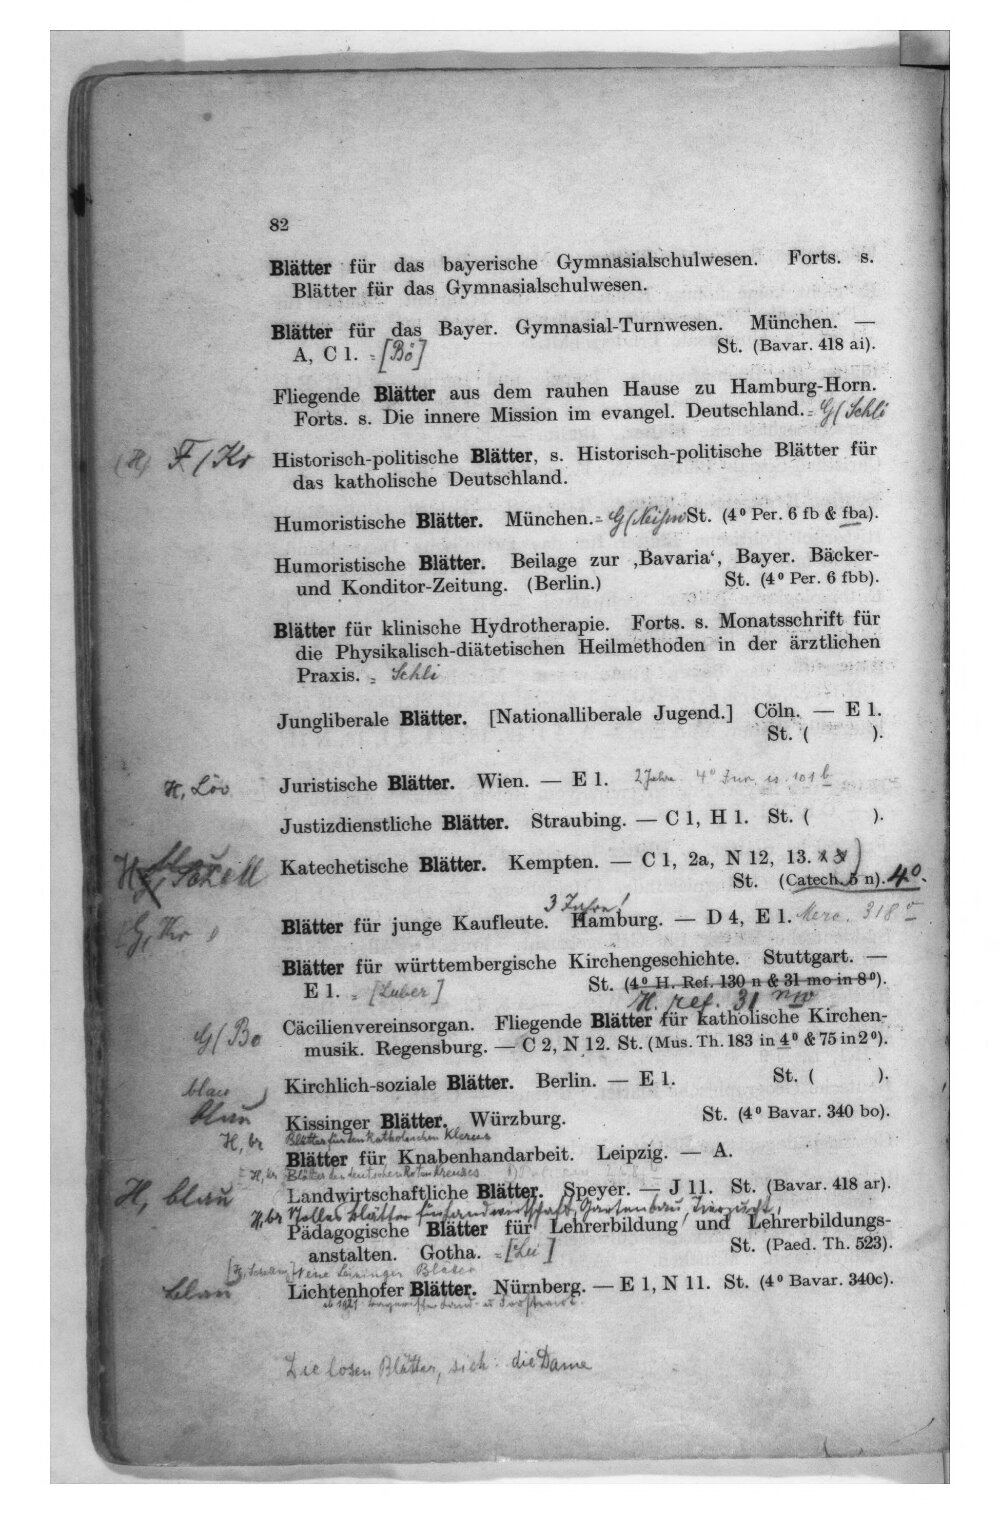 82
Blätter für das bayerische Gymnasialschulwesen. Forts. s.
Blätter für das Gymnasialschulwesen.
Blätter für das Bayer. Gymnasial-Turnwesen. München. —
A, C 1. = [Bö] St. (Bavar. 418 ai).
Fliegende Blätter aus dem rauhen Hause zu Hamburg-Horn.
Forts. s. Die innere Mission im evangel. Deutschland. = G/Schli
(H) F/Kr Historisch-politische Blätter, s. Historisch-politische Blätter für
das katholische Deutschland.
Humoristische Blätter. München. = St. (4⁰ Per. 6 fb & fba).
Humoristische Blätter. Beilage zur ‚Bavaria‘, Bayer. Bäcker-
und Konditor-Zeitung. (Berlin.) St. (4⁰ Per. 6 fbb).
Blätter für klinische Hydrotherapie. Forts. s. Monatsschrift für
die Physikalisch-diätetischen Heilmethoden in der ärztlichen
Praxis. = Schli
Jungliberale Blätter. [Nationalliberale Jugend.] Cöln. — E 1.
St. ( ).
H, Löv Juristische Blätter. Wien. — E 1. 2 Jahre 4⁰ Jur. is. 101 b
Justizdienstliche Blätter. Straubing. — C 1, H 1. St. ( ).
Katechetische Blätter. Kempten. — C 1, 2a, N 12, 13. x x )
St. (Catech. 5 n). 4⁰.
3 Jahre!
G, Kr Blätter für junge Kaufleute. Hamburg. — D 4, E 1. Merc. 318
Blätter für württembergische Kirchengeschichte. Stuttgart. —
E 1. = [Luber] St. (4⁰ H. Ref. 130 n & 31 mo in 8⁰).
H. ref. 31
G/Bo Cäcilienvereinsorgan. Fliegende Blätter für katholische Kirchen-
musik. Regensburg. — C 2, N 12. St. (Mus. Th. 183 in 4⁰ & 75 in 2⁰).
blau Kirchlich-soziale Blätter. Berlin. — E 1. St. ( ).
blau Kissinger Blätter. Würzburg. St. (4⁰ Bavar. 340 bo).
H, br Blätter für den katholischen Klerus
Blätter für Knabenhandarbeit. Leipzig. — A.
H, br Blätter des deutschen Roten Kreuzes
H, blau Landwirtschaftliche Blätter. Speyer. — J 11. St. (Bavar. 418 ar).
H, br Blätter für Landwirtschaft, Gartenbau, Tierzucht,
Pädagogische Blätter für Lehrerbildung und Lehrerbildungs-
anstalten. Gotha. = [Lei] St. (Paed. Th. 523).
Neue Leininger Blätter
blau Lichtenhofer Blätter. Nürnberg. — E 1, N 11. St. (4⁰ Bavar. 340c).
ab 1921
Die losen Blätter, sieh: die Dame